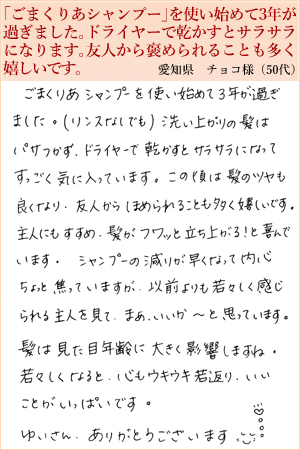 「ごまくりあシャンプー」を使い始めて3年が
過ぎました。ドライヤーで乾かすとサラサラ
になります。友人から褒められることも多く
嬉しいです。
愛知県 チョコ様(50代)
ごまくりあシャンプーを使い始めて3年が過ぎ
ました。(リンスなしでも)洗い上がりの髪は
パサつかず、ドライヤーで乾かすとサラサラになって
すっごく気に入っています。この頃は髪のツヤも
良くなり、友人からほめられることも多く嬉しいです。
主人にもすすめ、髪がフワッと立ち上がる!と喜んで
います。 シャンプーの減りが早くなって内心
ちょっと焦っていますが、以前よりも若々しく感じ
られる主人を見て、まぁ、いいか〜と思っています。
髪は見た目年齢に大きく影響しますね。
若々しくなると、心もウキウキ若返り、いい
ことがいっぱいです。
ゆいさん、ありがとうございます